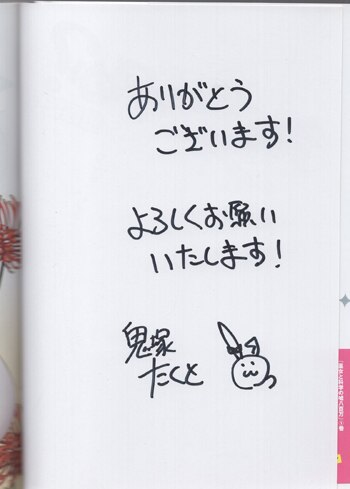 ありがとう
ございます!
よろしくお願い
いたします!
鬼塚
たくと